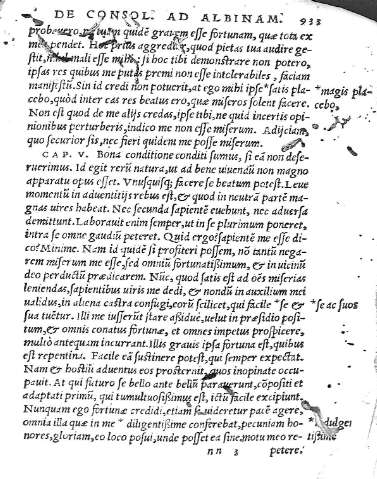 DE CONSOL. AD ALBINAM. 933
probauero, nō tum quidē grauem esse fortunam, quæ tota ex
me pendet. Hoc prius aggrediar, quod pietas tua audire ge-
stit, nihil mali esse mihi. Si hoc tibi demonstrare non potero,
ipsas res quibus me putas premi non esse intolerabiles, faciam
manifestū. Sin id credi non potuerit, at ego mihi ipse *satis pla- *magis pla
cebo, quòd inter eas res beatus ero, quæ miseros solent facere. cebo,
Non est quod de me alijs credas, ipse tibi, ne quid incertis opi-
nionibus perturberis, indico me non esse miserum. Adijciam,
quo securior sis, nec fieri quidem me posse miserum.
CAP. V. Bona conditione conditi sumus, si eā non dese-
ruerimus. Id egit rerū natura, ut ad bene uiuendū non magno
apparatu opus esset. Vnusquisq; facere se beatum potest. Leue
momentū in aduentitijs rebus est, & quod in neutrā partē ma-
gnas uires habeat. Nec secunda sapientē euehunt, nec aduersa
demittunt. Laborauit enim semper, ut in se plurimum poneret,
intra se omne gaudiū peteret. Quid ergo? sapientē me esse di-
co? Minime. Nam id quidē si profiteri possem, nō tantū nega-
rem miserum me esse, sed omniū fortunatißimum, & in uicinū
deo perductū prædicarem. Nūc, quod satis est ad oēs miserias
leniendas, sapientibus uiris me dedi, & nondū in auxilium mei
ualidus, in aliena castra confugi, eorū scilicet, qui facile *se & *se ac suos
sua tuētur. Illi me iusserūt stare aßidue, uelut in præsidio posi-
tum, & omnis conatus fortunæ, et omnes impetus prospicere,
multò antequam incurrant. Illis grauis ipsa fortuna est, quibus
est repentina. Facile eā sustinere potest, qui semper expectat.
Nam & hostiū aduentus eos prosternit, quos inopinate occu-
pauit. At qui futuro se bello ante bellū parauerunt, cōpositi et
adaptati primū, qui tumultuosißimus est, ictū facile excipiunt.
Nunquam ego fortunæ credidi, etiam si uideretur pacē agere,
omnia illa quæ in me * diligentißime conferebat, pecuniam ho- *indulgen
nores, gloriam, eo loco posui, unde posset ea sine motu meo re- tißime
nn 3 petere.